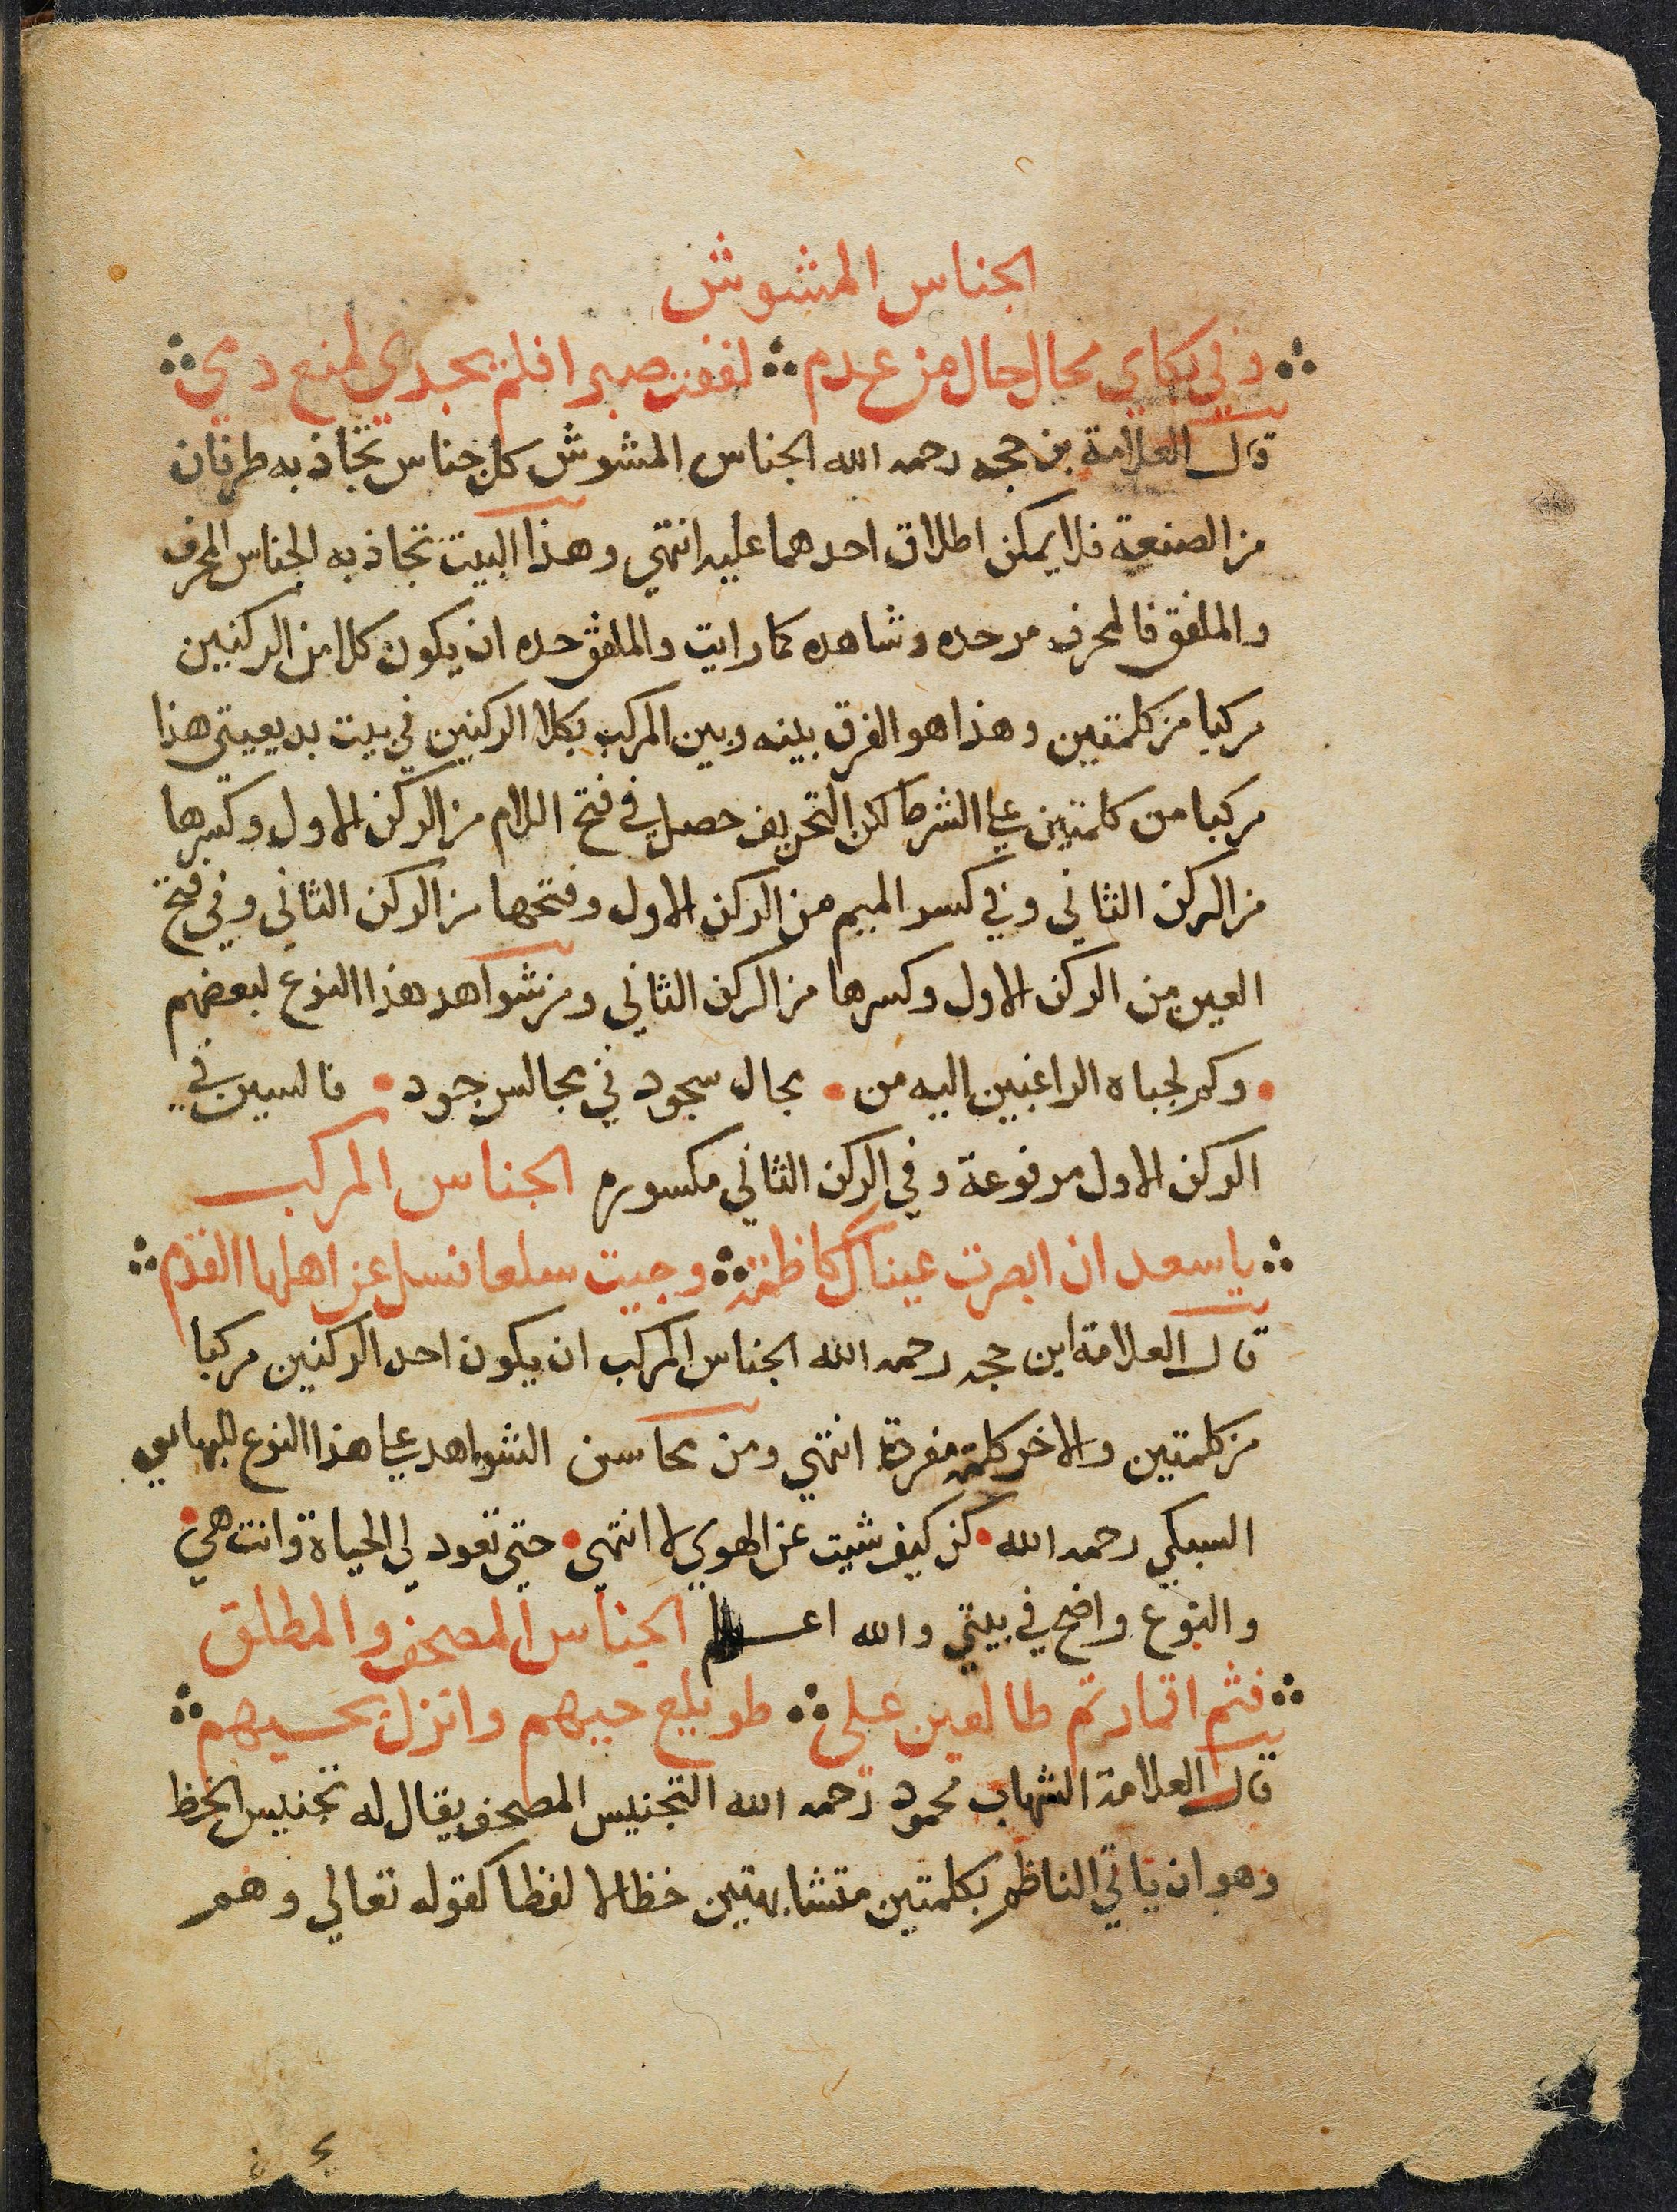 الجناس المشوش
وفي بكاي محال حال من عدم لفقت صبرا فلم يجدي لمنع دمي
قال العلامة بن حجه رحمه الله الجناس المشوش كل جناس تجاذبه طرفان
من الصنعة فلا يمكن اطلاق احدهما عليه انتهي وهذا البيت تجاذبه الجناس المحرف
والملفق فالمحرف مر حده وشاهده كما رايت والملفق حده ان يكون كلا من الركنين
مركبا من كلمتين وهذا هو الفرق بينه وبين المركب بكلا الركنين في بيت بديعيتي هذا
مركبا من كلمتين علي الشرط لكن التحريف حصل في فتح اللام من الركن الاول وكسرها
من الركن الثاني وفي كسر الميم من الركن الاول وفتحها من الركن الثاني وفي فتح
العين من الركن الاول وكسرها من الركن الثاني ومن شواهد هذا النوع لبعضهم
وكم لجباه الراغبين اليه من مجال سجود في مجالس جود فالسين في
الركن الاول مرفوعة وفي الركن الثاني مكسوره الجناس المركب
يا سعد ان ابصرت عيناك كاظمة وجيت سلعا فسل عن اهلها القدم
قال العلامة ابن حجه رحمه الله الجناس المركب ان يكون احد الركنين مركبا
من كلمتين والاخر كلمة مفردة انتهي ومن محاسن الشواهد علي هذا النوع للبهايي
السبكي رحمه الله كن كيف شيت عن الهوي لا انتهي حتي تعود لي الحياة وانت هي
والنوع واضح في بيتي والله اعلم الجناس المصحف والمطلق
فثم اقمار تم طالعين علي طويلع حيهم وانزل بحيهم
قال العلامة الشهاب محمود رحمه الله التجنيس المصحف يقال له تجنيس الخط
وهو ان ياتي الناظم بكلمتين متشابهتين خطا لا لفظا كقوله تعالي وهم